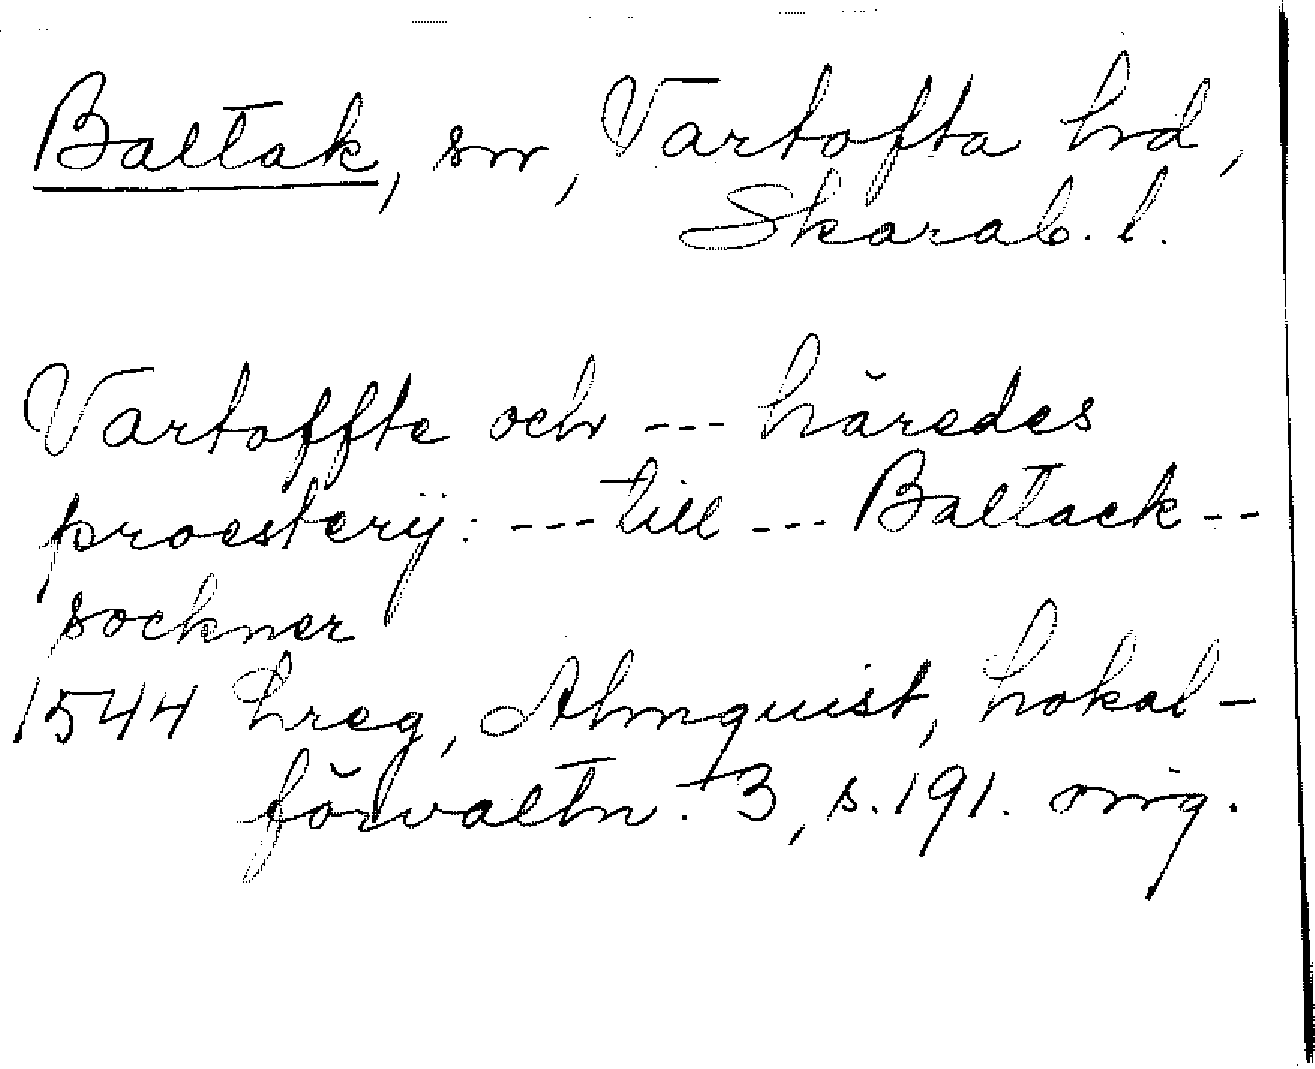 Baltak, sn, Vartofta hd,
Skarab. l.
Vartoffte och --- häredes
proesterij: --- till --- Baltack --
sockner
1544 Lreg, Almquist, Lokal-
förvaltn. 3, s. 191. orig.